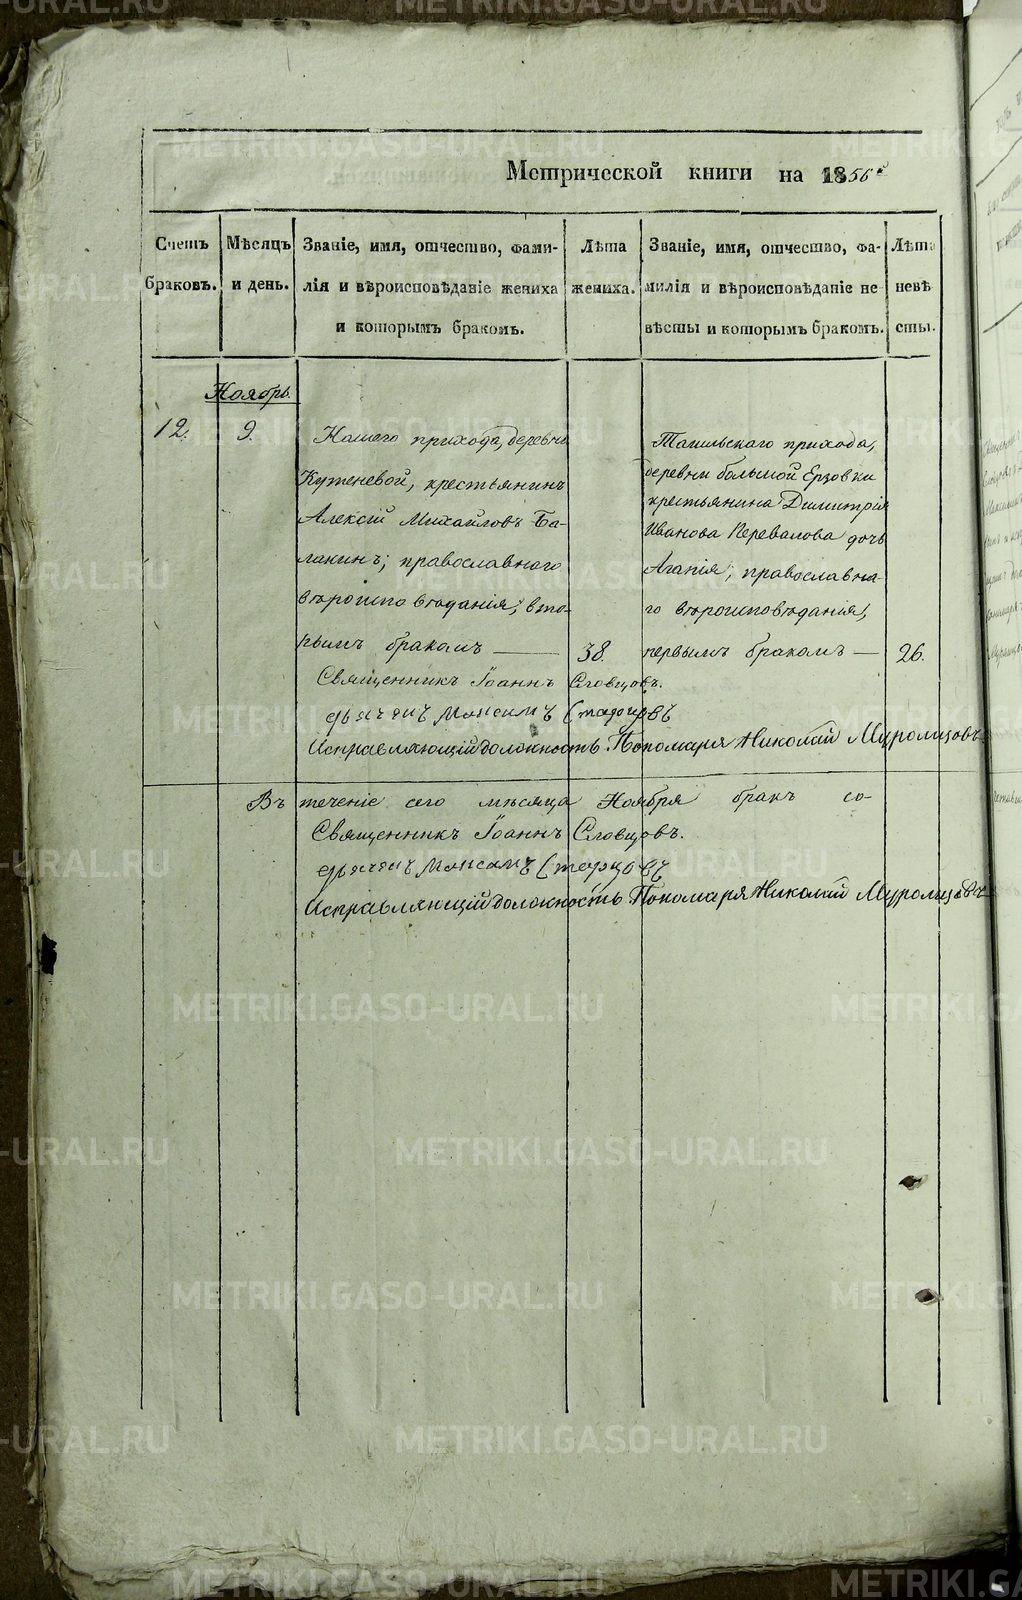 Метрической книги на 1856й
Счетъ
браковъ.
Мѣсяцъ
и день.
Званіе, имя, отчество, фами-
лія и вѣроисповѣданіе жениха
и которымъ бракомъ.
Лѣта
жениха.
Званіе, имя, отчество, фа-
милія и вѣроисповѣданіе не
вѣсты и которымъ бракомъ.
Лѣта
невѣ
сты.
Ноябрь.
12.
9.
Нашего прихода, деревни
Кутеневой, крестьянинъ
Алексій Михайловъ Ба-
лакинъ; православнаго
вѣроисповѣданія, вто-
рымъ бракомъ
38.
Танильскаго прихода,
деревни большой Ерзовки
крестьянина Димитрія
Иванова Перевалова дочь
Агапія; православна-
го вѣроисповѣданія,
первымъ бракомъ
26.
Священникъ Іоаннъ Словцовъ.
дьячекъ Максимъ
Исправляющій должность Пономаря Николай Муромцовъ
Въ теченіе сего мѣсяца Ноября бракъ со-
Священникъ Іоаннъ Словцовъ.
дьячекъ Максимъ
Исправляющій должность Пономаря Николай Муромцовъ
METRIKI.GASO-URAL.RU